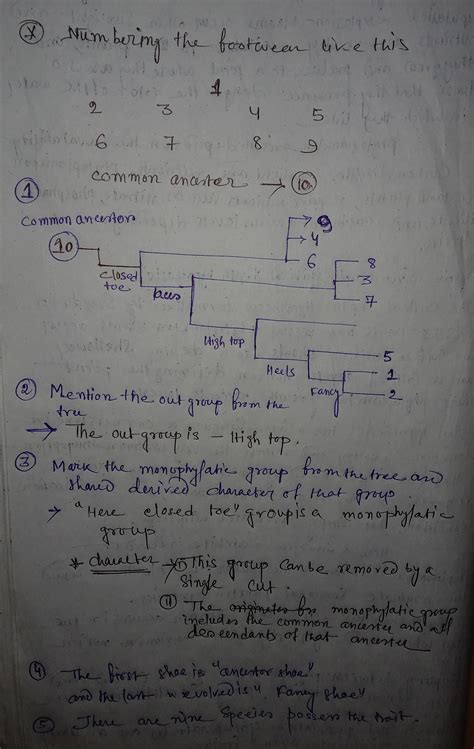 (X) Numbering the footwear like this
1
2 3 4 5
6 7 8 9
common ancester → (10)
(1)
common ancestors
(10)
closed toe
laces
High top
Heels
Fancy
9
4
6
8
3
7
5
1
2
(2) Mention the out group from the
tree
→ The out group is - High top.
(3) Mark the monophylatic group from the tree and
shared derived character of that group.
→ "Here closed toe" group is a monophylatic
group
* character → (i) This group can be removed by a
single cut.
(ii) The monophylatic group
includes the common ancester and all
descendants of that ancester
(4) The first shoe is "ancestor shoe",
and the last evolved is "Fancy shoe"
(5) There are nine species possess the trait.